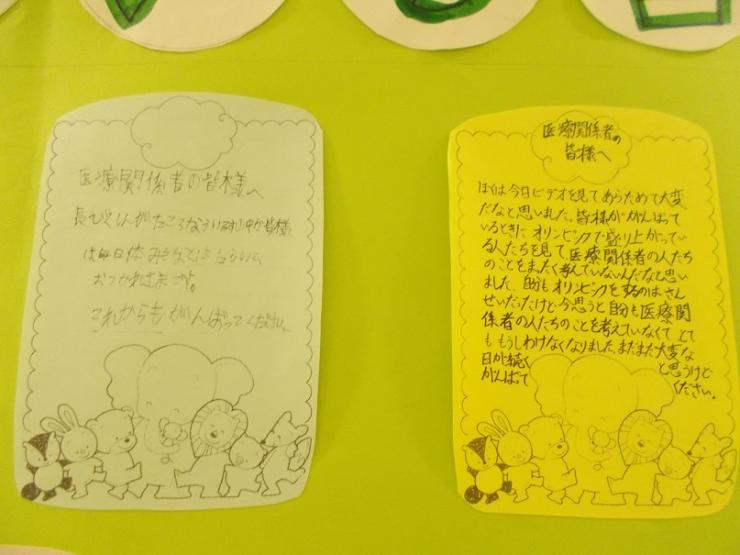 医療関係者の皆様へ
皆様
は毎日休み
おつかれさまです。
これからもがんばってください。
医療関係者の
皆様へ
ぼくは今日ビデオを見てあらためて大変
だなと思いました。皆様ががんばって
いるときに オリンピックで盛り上がってい
る人たちを見て医療関係者の人たち
のことをまったく考えていないんだなと思い
ました。自分もオリンピックをするのはさん
せいだったけど今思うと自分も医療関
係者の人たちのことを考えていなくて とて
ももうしわけなくなりました。まだまだ大変な
日が続く と思うけど
がんばって ください。